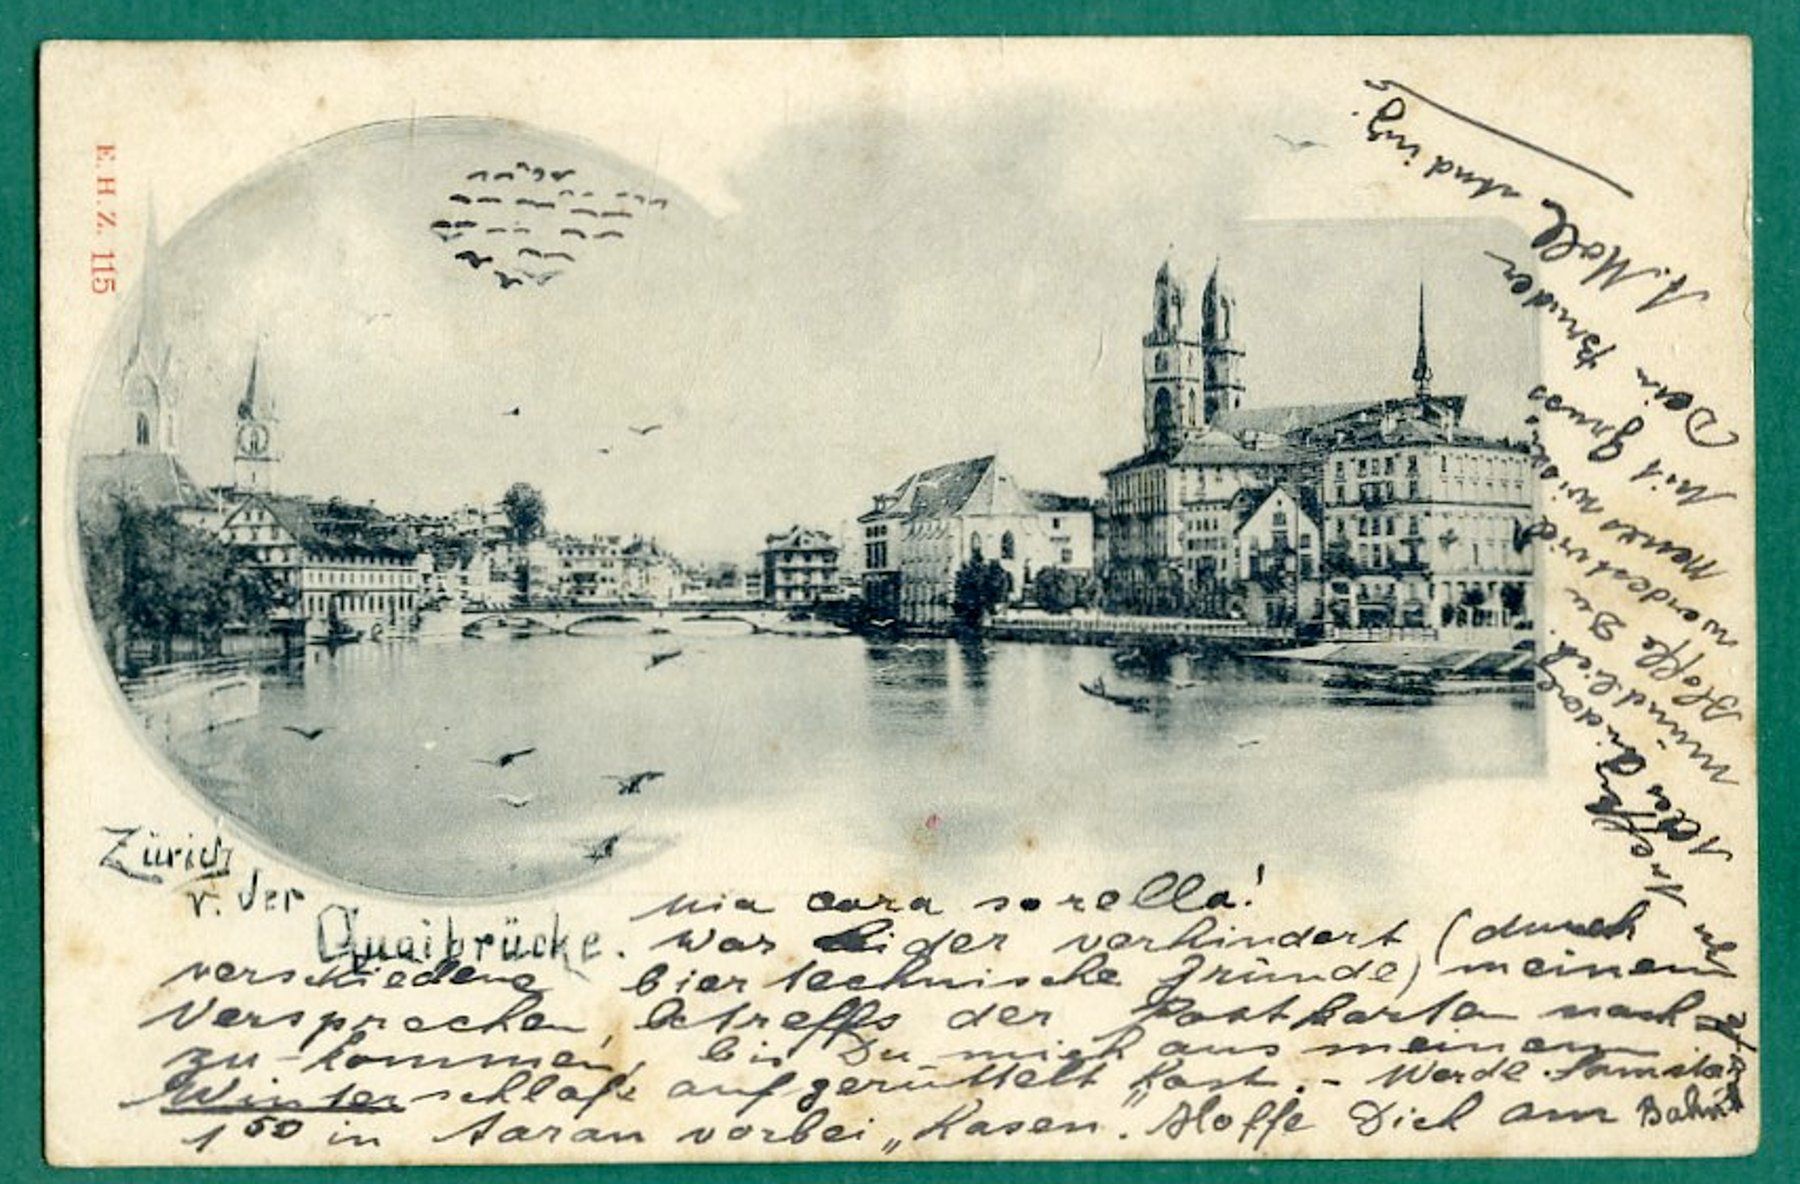 E. H. Z. 115
Zürich
v. der
Quaibrücke.
Mia cara sorella!
War leider verhindert (durch
verschiedene biertechnische Gründe) meinem
Versprechen betreffs der Postkarten nach-
zu-kommen, bis Du mich aus meinem
Winterschlafe aufgerüttelt hast. - Werde Samstag
1 50 in Aarau vorbei „Rasen". Hoffe Dich am Bahnhofe
zu treffen
mündlich.
Hoffe Du
Mit Gruss
Dein Bruder
A. Moll stud ing.